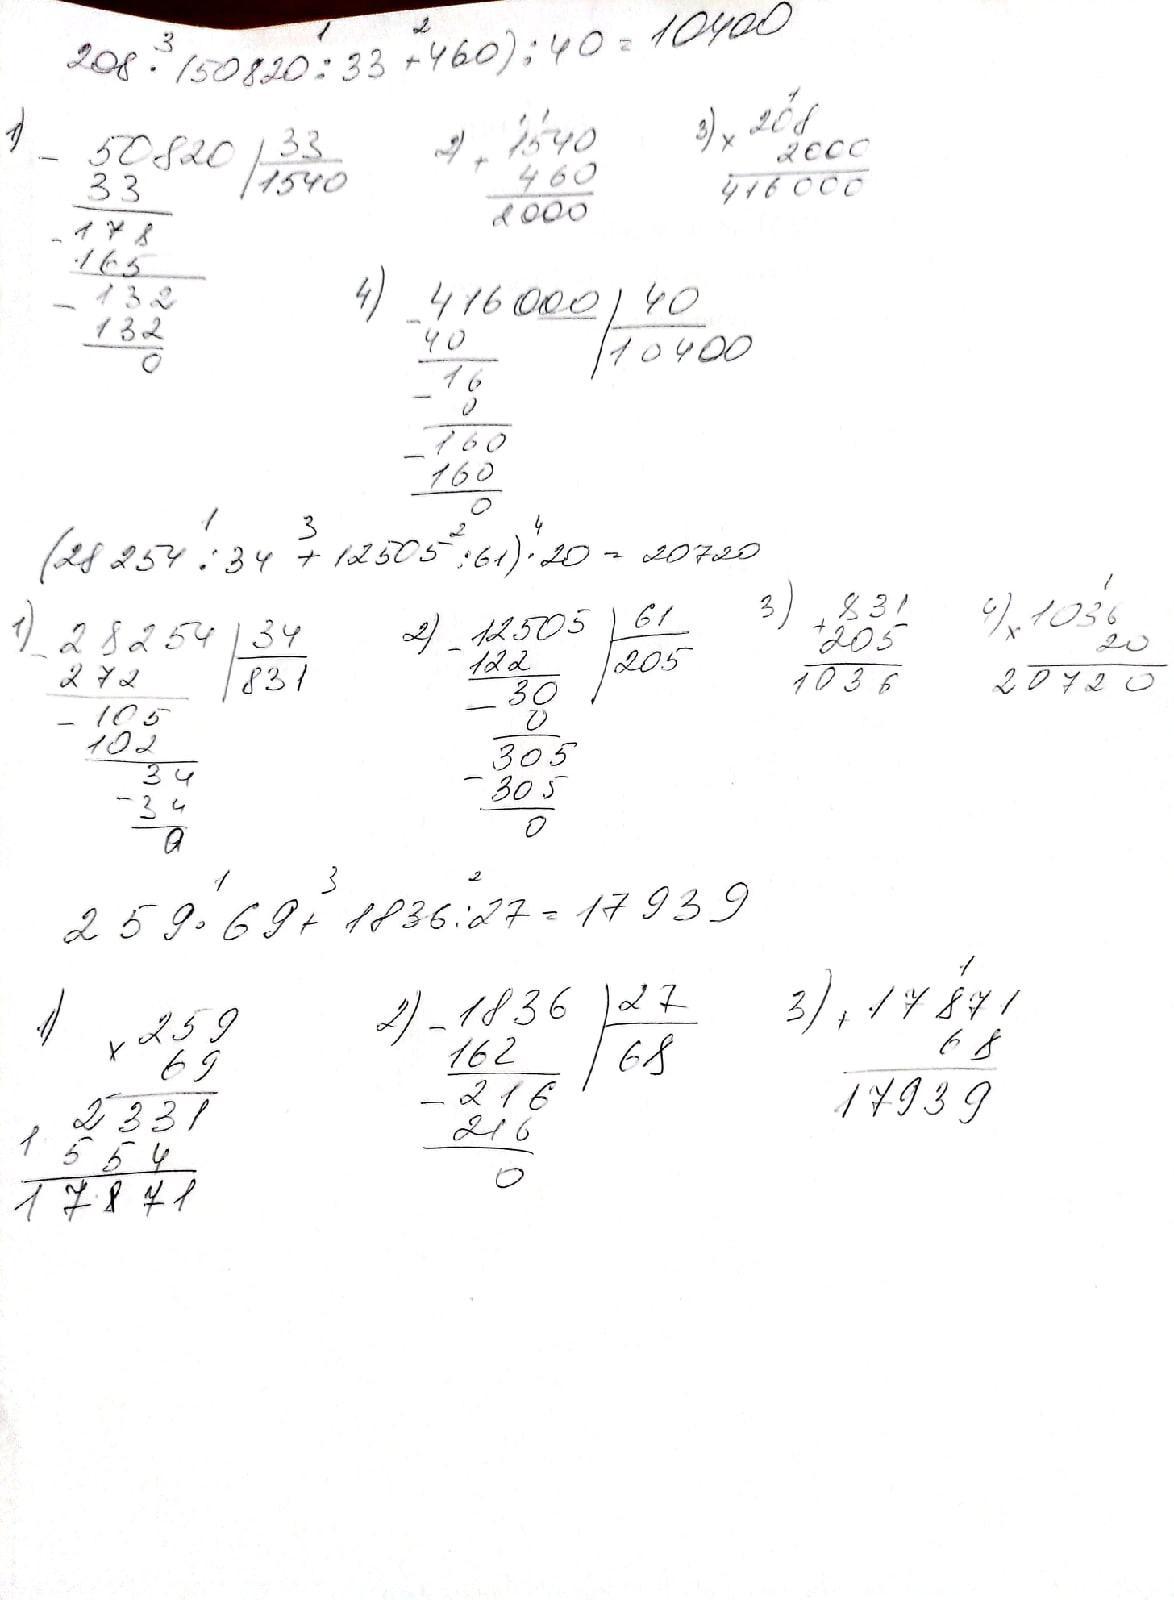 208 · (50820 : 33 + 460) : 40 = 10400
3 1 2
1) - 50820 | 33
33 1540
- 178
165
- 132
132
0
2) + 1540
460
2000
1 1
3) × 208
2000
416000
1
4) - 416000 | 40
40 10400
- 16
0
- 160
160
0
1 3 2 4
(28254 : 34 + 12505 : 61) · 20 = 20720
1) - 28254 | 34
272 831
- 105
102
34
- 34
0
2) - 12505 | 61
122 205
- 30
0
305
- 305
0
3) + 831
205
1036
1
4) × 1036
20
20720
1 3 2
259 · 69 + 1836 : 27 = 17939
1) × 259
69
2331
1554
17871
2) - 1836 | 27
162 68
- 216
216
0
1
3) + 17871
68
17939